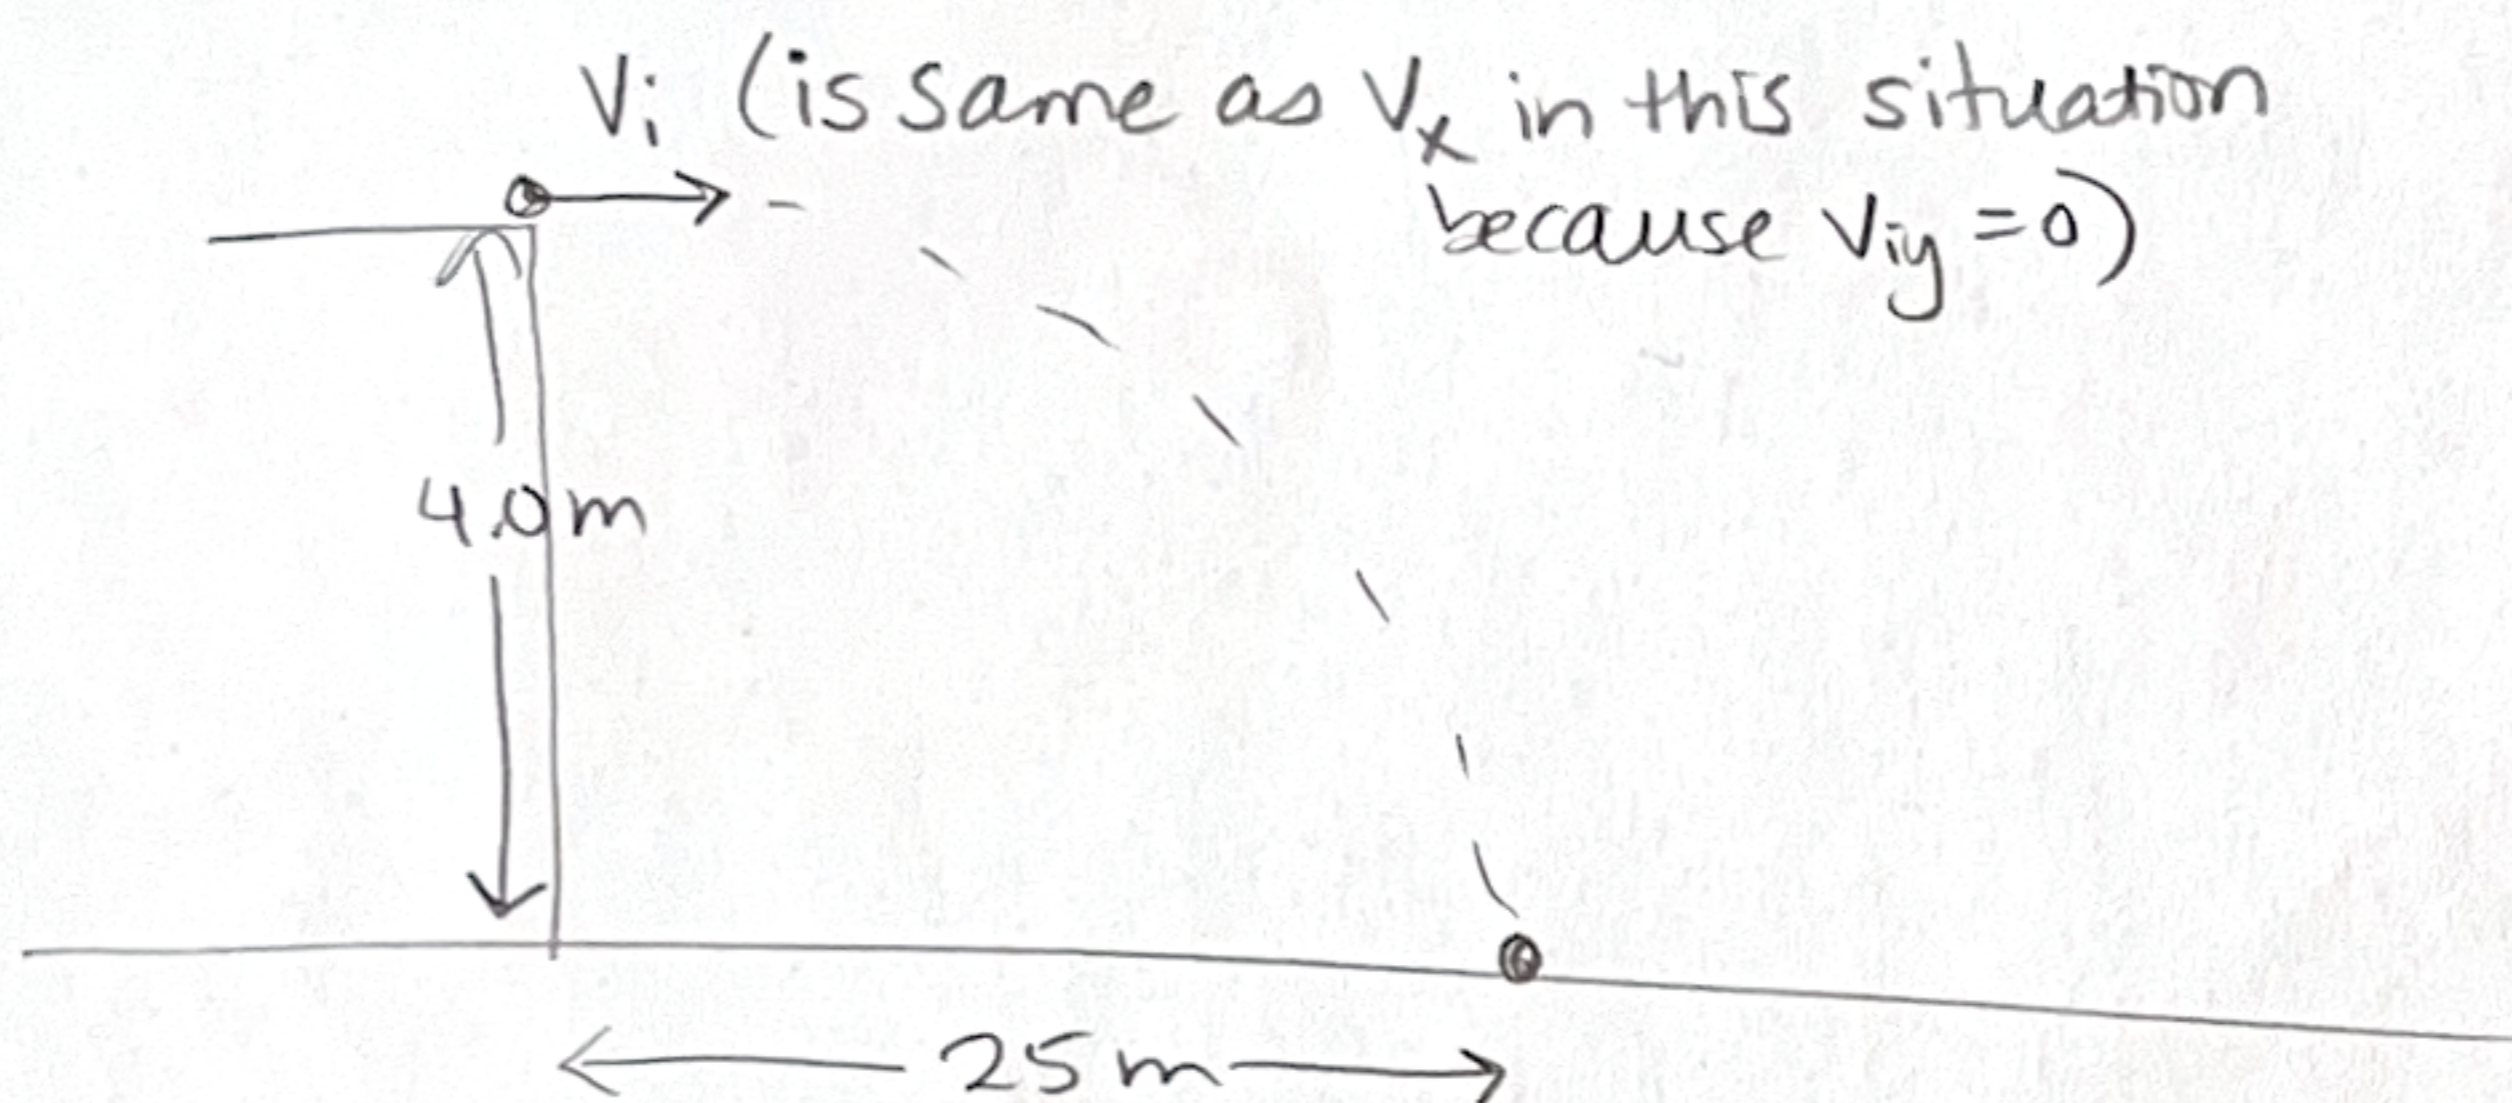 Vi (is same as Vx in this situation
because Viy = 0)
4.0m
25m